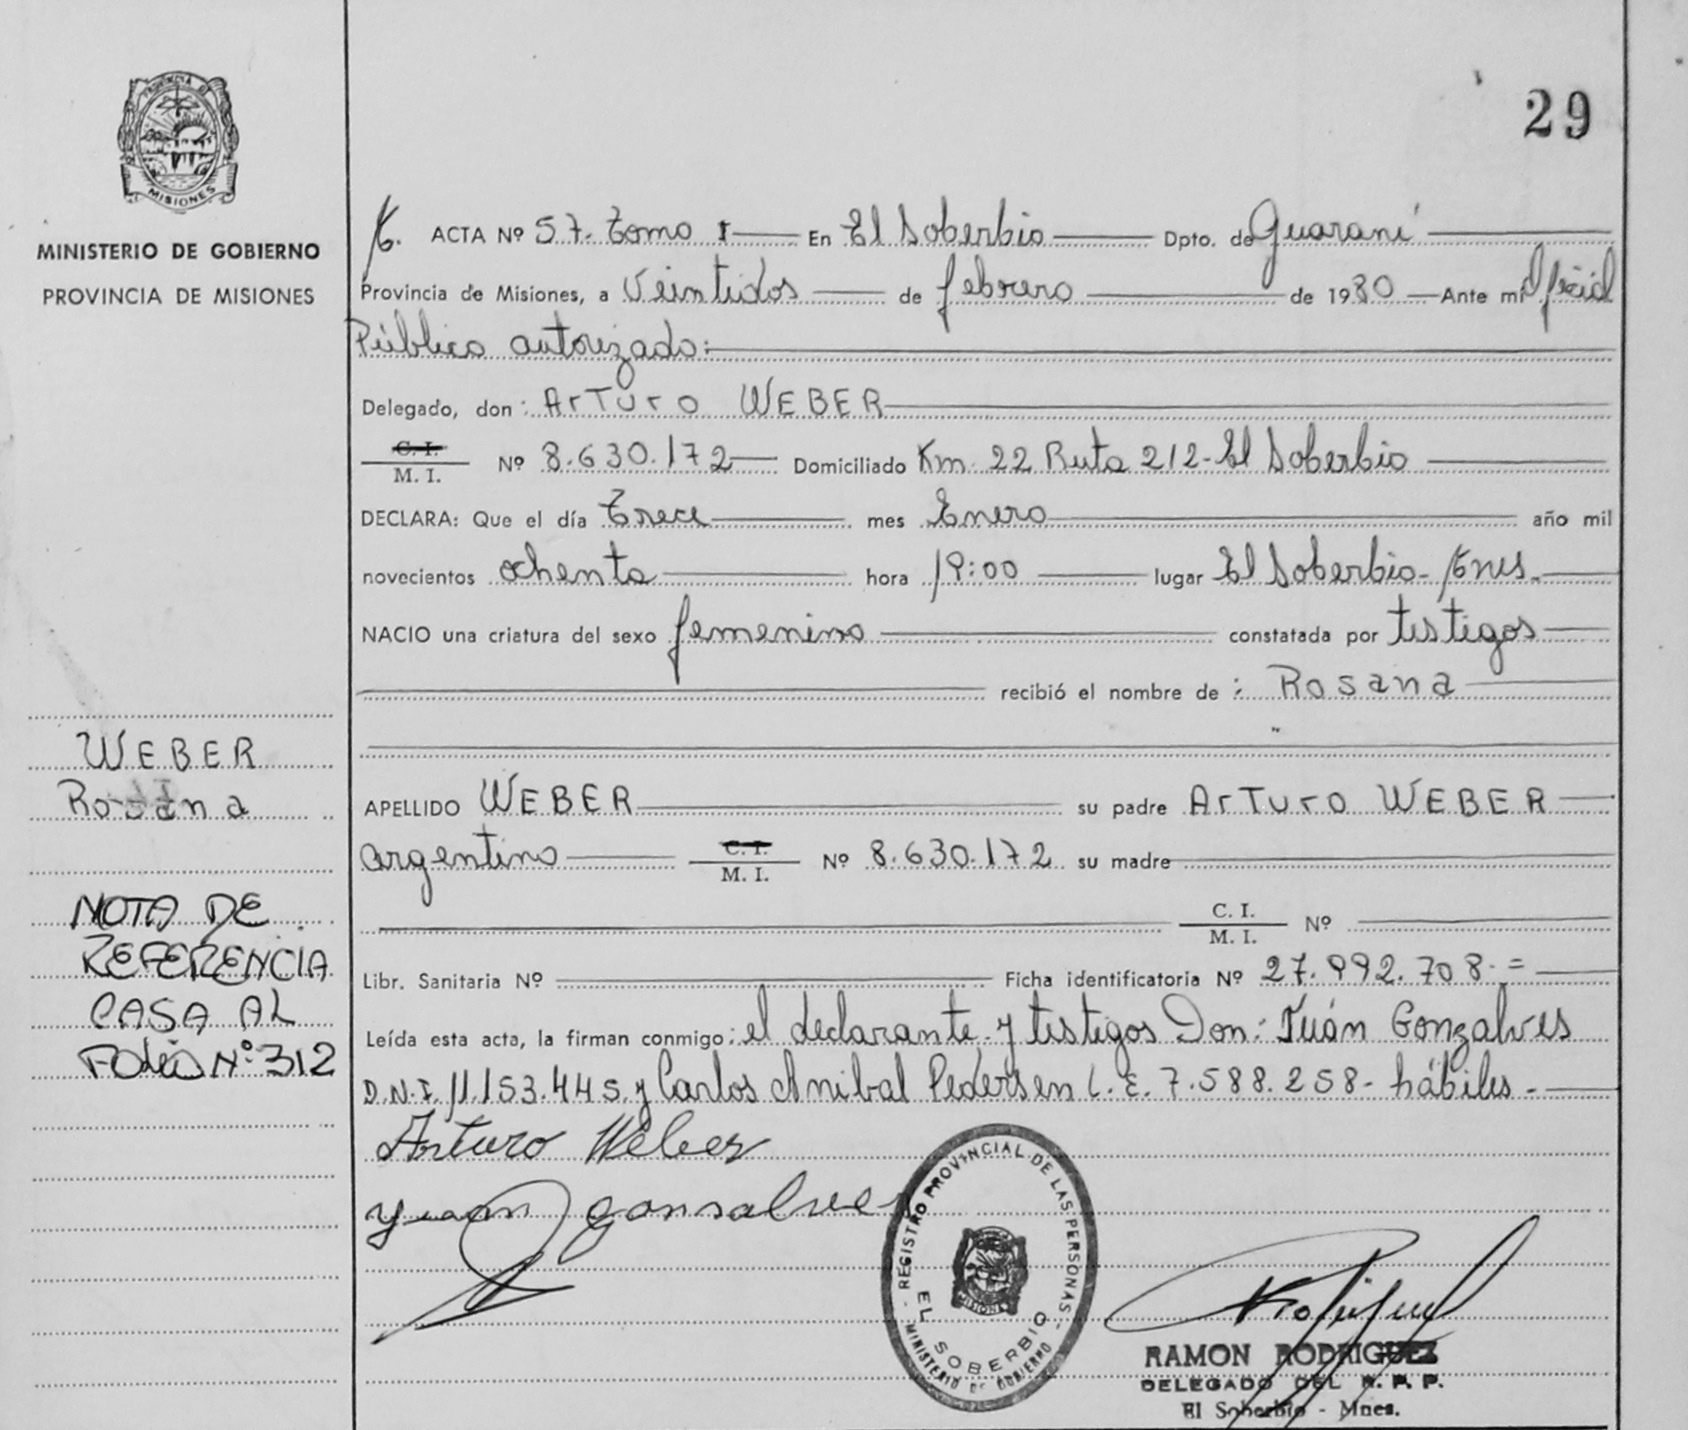 29
PROVINCIA DE
MISIONES
MINISTERIO DE GOBIERNO
PROVINCIA DE MISIONES
ACTA Nº 57. Tomo I En El Soberbio Dpto. de Guaraní
Provincia de Misiones, a Veintidos de febrero de 1980 Ante mi Oficial
Público autorizado:
Delegado, don: Arturo WEBER
C. I.
M. I. Nº 8.630.172 Domiciliado Km. 22 Ruta 212-El Soberbio
DECLARA: Que el día Trece mes Enero año mil
novecientos ochenta hora 19:00 lugar El Soberbio-
NACIO una criatura del sexo femenino constatada por testigos
recibió el nombre de: Rosana
WEBER
Rosana
APELLIDO WEBER su padre Arturo WEBER
argentino C. I.
M. I. Nº 8.630.172 su madre
C. I.
M. I. Nº
NOTA DE
REFERENCIA
CASA AL
FOLIO Nº 312
Libr. Sanitaria Nº Ficha identificatoria Nº 27.992.708.=
Leída esta acta, la firman conmigo: el declarante y testigos Don: Juán Gonzalves
D.N.I. 11.153.445 y Carlos Anibal Pedersen L.E. 7.588.258- hábiles.-
Arturo Weber
Juan gonsalves
REGISTRO PROVINCIAL DE LAS PERSONAS
EL SOBERBIO
MINISTERIO DE GOBIERNO
MISIONES
RAMON RODRIGUEZ
DELEGADO DEL R. P. P.
El Soberbio - Mnes.